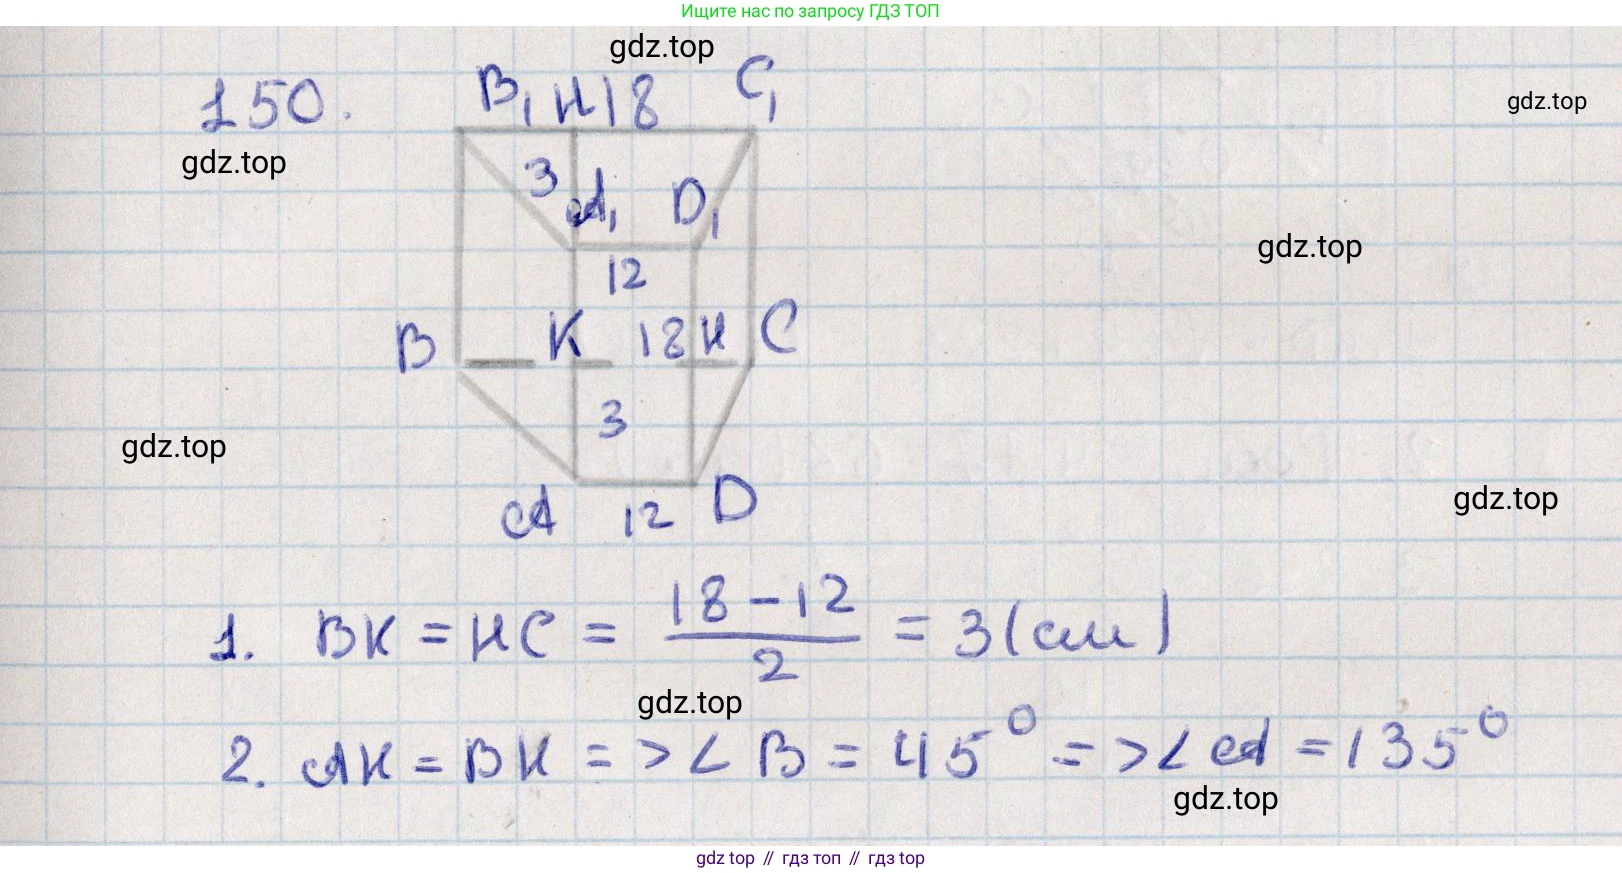 Ищите нас по запросу ГДЗ ТОП
gdz.top
150.
B₁ H 18 C₁
gdz.top
gdz.top
3 A₁ D₁
gdz.top
12
B K 18 H C
3
gdz.top
A 12 D
gdz.top
1. BK = HC = (18 - 12)/2 = 3 (см)
gdz.top
2. AK = BK => ∠B = 45° => ∠A = 135°
gdz.top
gdz top // гдз топ // гдз top